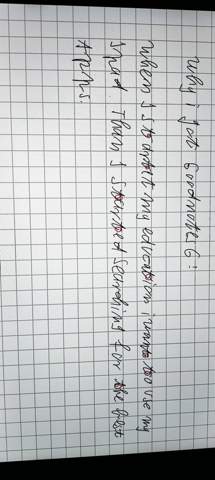 Why i got Goodnotes 6:
When I startet my education i want to use my
Ipad. Then I started searching for the best
Apps.